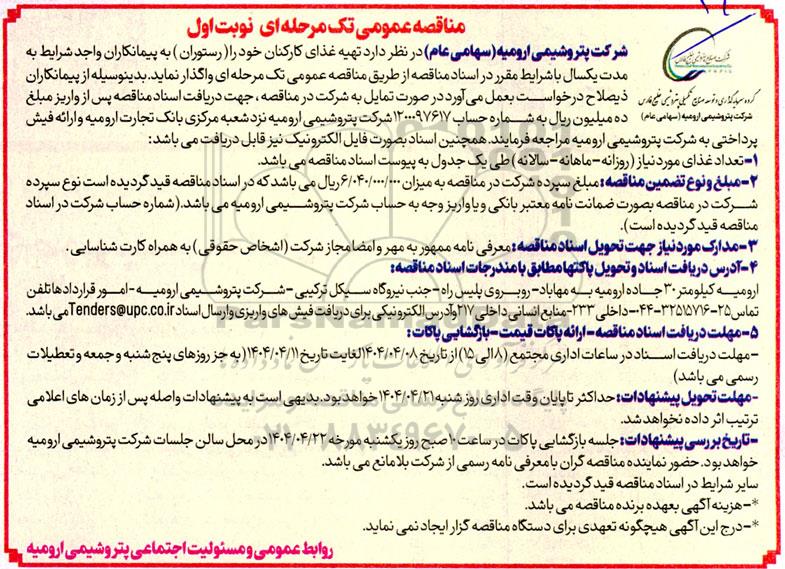 مناقصه عمومی تک مرحله ای نوبت اول
گروه سرمایه گذاری و توسعه صنایع تکمیلی پتروشیمی خلیج فارس
شرکت پتروشیمی ارومیه (سهامی عام)
شرکت پتروشیمی ارومیه (سهامی عام) در نظر دارد تهیه غذای کارکنان خود را ( رستوران ) به پیمانکاران واجد شرایط به
مدت یکسال با شرایط مقرر در اسناد مناقصه از طریق مناقصه عمومی تک مرحله ای واگذار نماید. بدینوسیله از پیمانکاران
ذیصلاح درخواست بعمل می آورد در صورت تمایل به شرکت در مناقصه ، جهت دریافت اسناد مناقصه پس از واریز مبلغ
ده میلیون ریال به شماره حساب ۱۲۰۰۰۹۷۶۱۷ شرکت پتروشیمی ارومیه نزد شعبه مرکزی بانک تجارت ارومیه و ارائه فیش
پرداختی به شرکت پتروشیمی ارومیه مراجعه فرمایند. همچنین اسناد بصورت فایل الکترونیک نیز قابل دریافت می باشد :
۱- تعداد غذای مورد نیاز ( روزانه - ماهانه - سالانه ) طی یک جدول به پیوست اسناد مناقصه می باشد.
۲- مبلغ و نوع تضمین مناقصه : مبلغ سپرده شرکت در مناقصه به میزان ۶/۰۴۰/۰۰۰/۰۰۰ ریال می باشد که در اسناد مناقصه قید گردیده است نوع سپرده
شرکت در مناقصه بصورت ضمانت نامه معتبر بانکی و یا واریز وجه به حساب شرکت پتروشیمی ارومیه می باشد. (شماره حساب شرکت در اسناد
مناقصه قید گردیده است).
۳- مدارک مورد نیاز جهت تحویل اسناد مناقصه : معرفی نامه ممهور به مهر و امضا مجاز شرکت ( اشخاص حقوقی ) به همراه کارت شناسایی .
۴- آدرس دریافت اسناد و تحویل پاکتها مطابق با مندرجات اسناد مناقصه:
ارومیه کیلومتر ۳۰ جاده ارومیه به مهاباد - روبروی پلیس راه - جنب نیروگاه سیکل ترکیبی - شرکت پتروشیمی ارومیه - امور قراردادها تلفن
تماس ۲۵-۳۲۵۱۵۷۱۶-۰۴۴ - داخلی ۲۳۳ - منابع انسانی داخلی ۲۱۷ و آدرس الکترونیکی برای دریافت فیش های واریزی و ارسال اسناد Tenders@upc.co.ir می باشد.
۵- مهلت دریافت اسناد مناقصه - ارائه پاکات قیمت - بازگشایی پاکات :
- مهلت دریافت اسناد در ساعات اداری مجتمع ( ۸ الی ۱۵) از تاریخ ۱۴۰۴/۰۴/۰۸ لغایت تاریخ ۱۴۰۴/۰۴/۱۱ ( به جز روزهای پنج شنبه و جمعه و تعطیلات
رسمی می باشد)
- مهلت تحویل پیشنهادات : حداکثر تا پایان وقت اداری روز شنبه ۱۴۰۴/۰۴/۲۱ خواهد بود. بدیهی است به پیشنهادات واصله پس از زمان های اعلامی
ترتیب اثر داده نخواهد شد.
- تاریخ بررسی پیشنهادات : جلسه بازگشایی پاکات در ساعت ۱۰ صبح روز یکشنبه مورخه ۱۴۰۴/۰۴/۲۲ در محل سالن جلسات شرکت پتروشیمی ارومیه
خواهد بود. حضور نماینده مناقصه گران با معرفی نامه رسمی از شرکت بلامانع می باشد.
سایر شرایط در اسناد مناقصه قید گردیده است.
*- هزینه آگهی بعهده برنده مناقصه می باشد.
*- درج این آگهی هیچگونه تعهدی برای دستگاه مناقصه گزار ایجاد نمی نماید.
روابط عمومی و مسئولیت اجتماعی پتروشیمی ارومیه